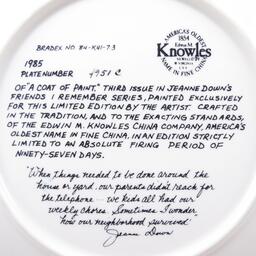 AMERICA'S OLDEST
1854
Edwin M.
Knowles
NAME IN FINE CHINA
BRADEX NO. 84-K41-7.3
1985
PLATE NUMBER 4951 C
OF "A COAT OF PAINT," THIRD ISSUE IN JEANNE DOWN'S
FRIENDS I REMEMBER SERIES, PAINTED EXCLUSIVELY
FOR THIS LIMITED EDITION BY THE ARTIST. CRAFTED
IN THE TRADITION, AND TO THE EXACTING STANDARDS,
OF THE EDWIN M. KNOWLES CHINA COMPANY, AMERICA'S
OLDEST NAME IN FINE CHINA, IN AN EDITION STRICTLY
LIMITED TO AN ABSOLUTE FIRING PERIOD OF
NINETY-SEVEN DAYS.
"When things needed to be done around the
house or yard, our parents didn't reach for
the telephone — we kids all had our
weekly chores. Sometimes I wonder
how our neighborhood survived"
Jeanne Down